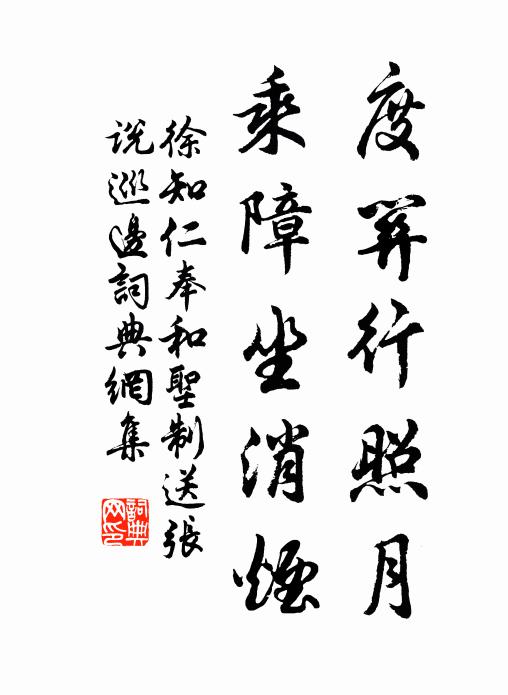 度關行照月
乘障坐消煙
徐知仁奉和聖制送張
説巡邊詞典網集
詞典
网印